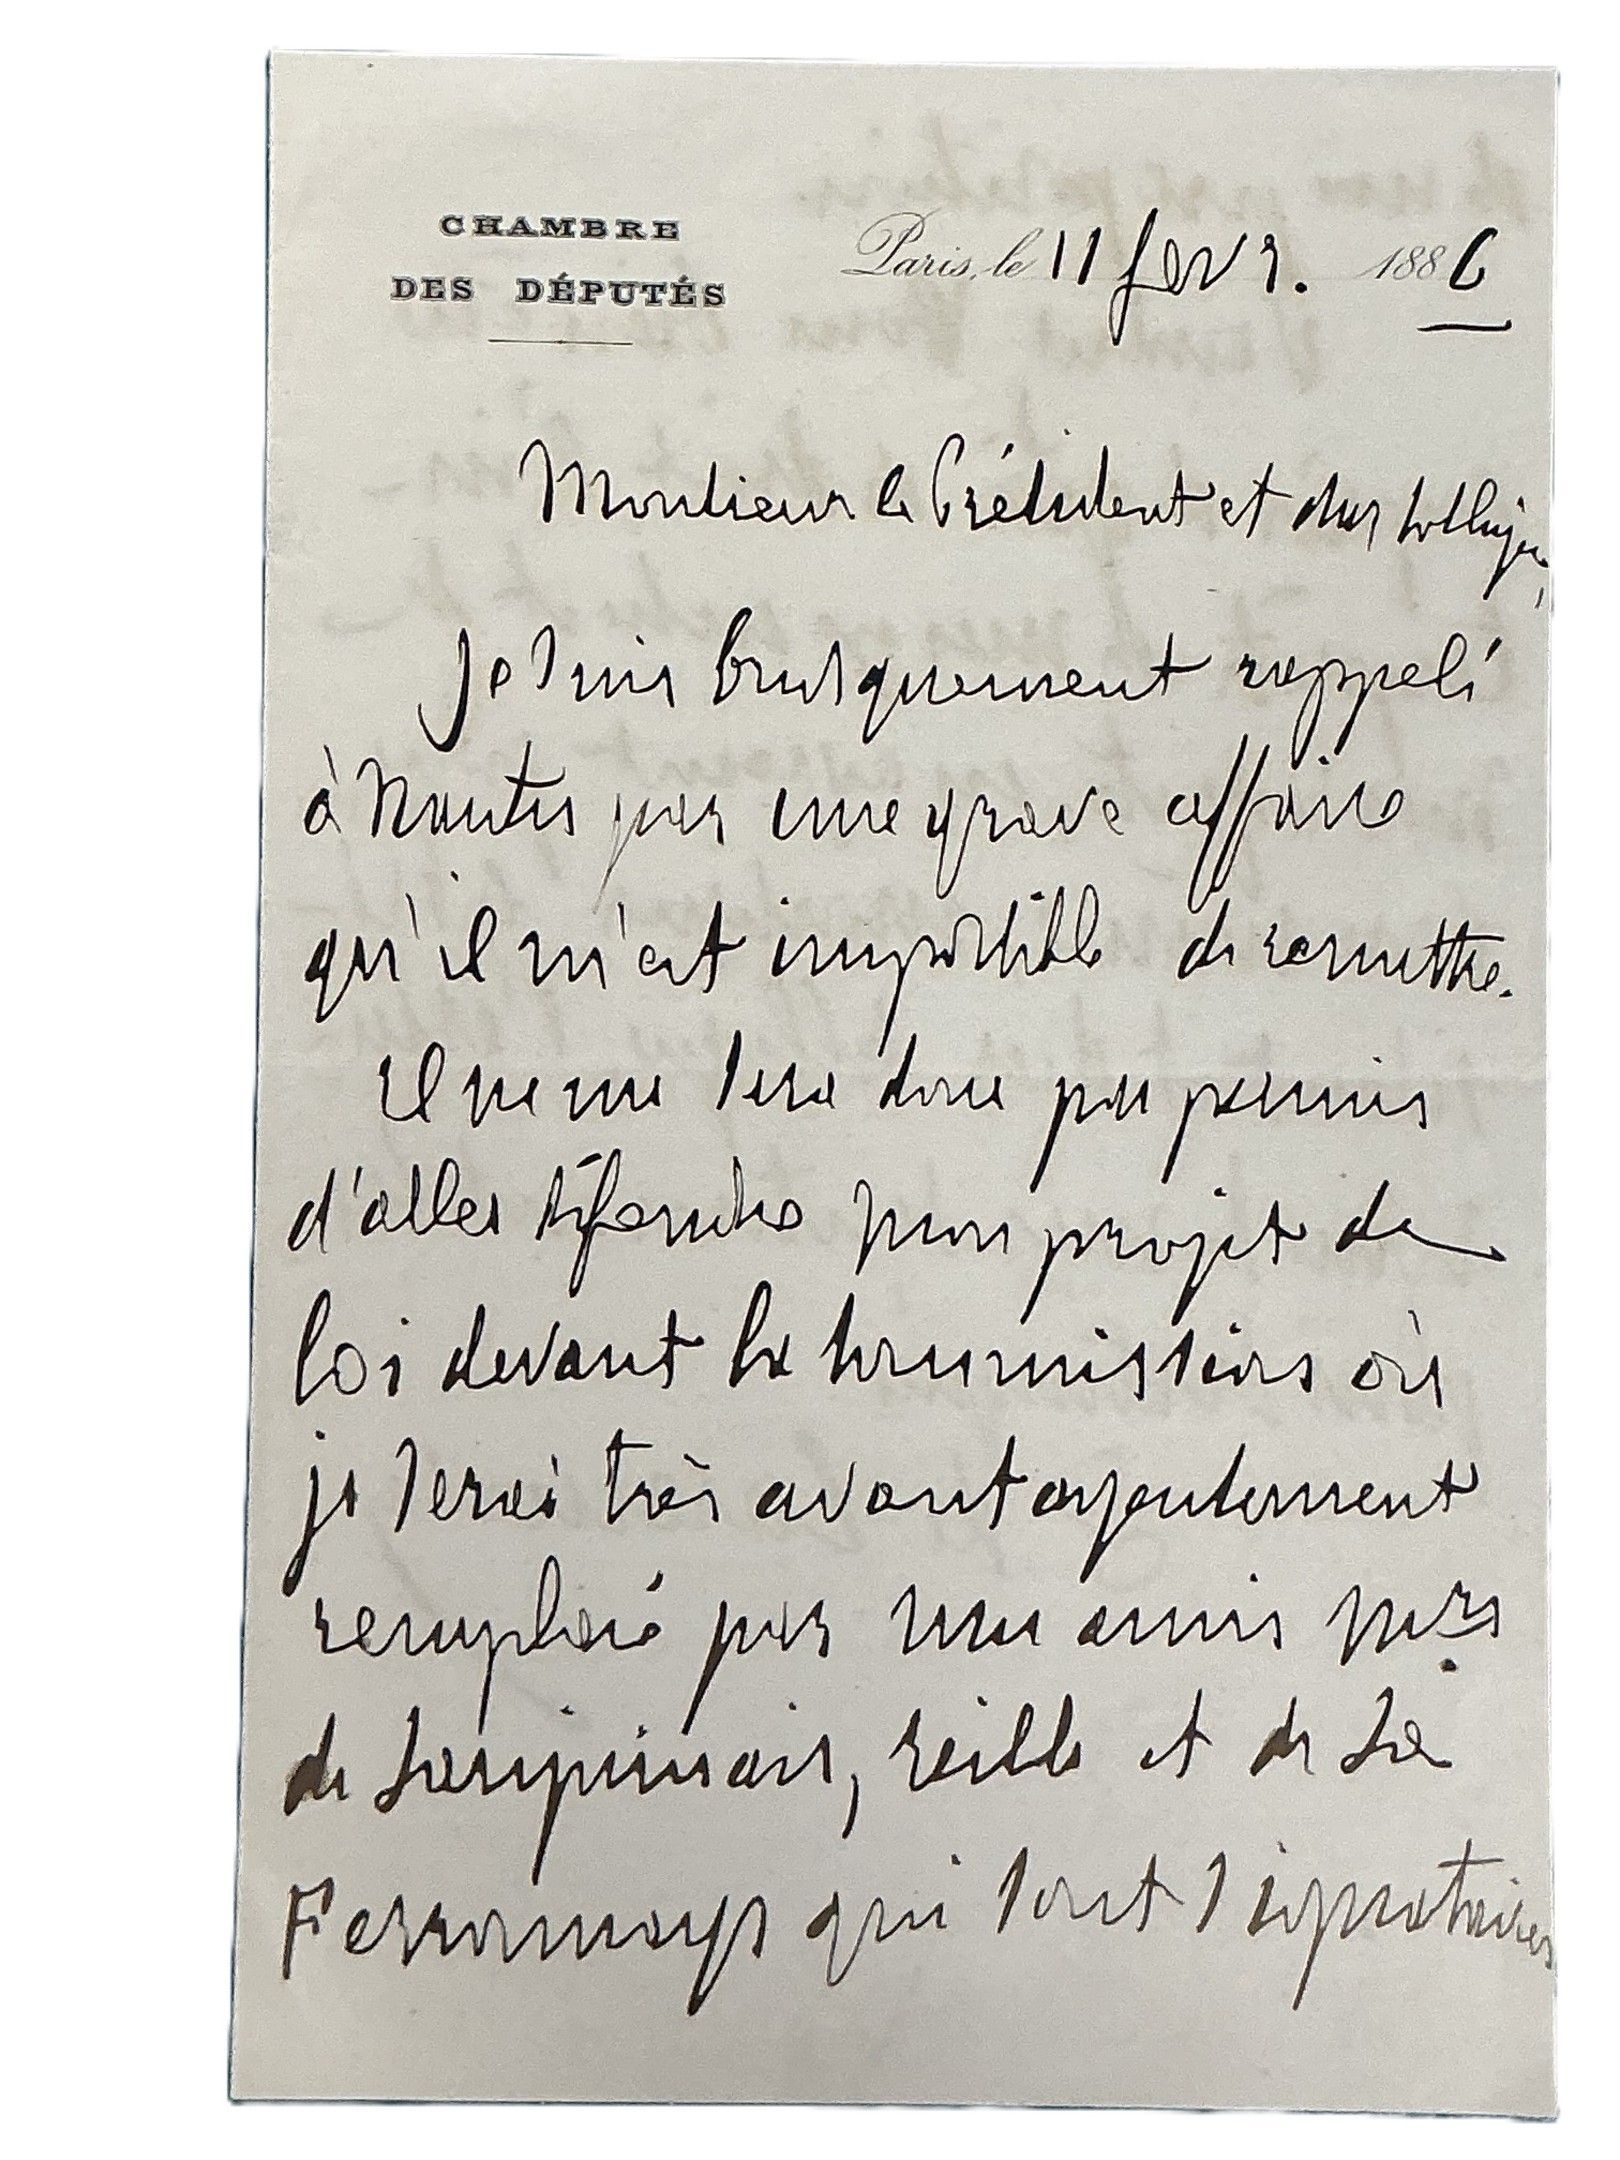 CHAMBRE
DES DÉPUTÉS
Paris, le 11 fevr. 1886
Monsieur le Président et cher collègue,
Je suis brusquement rappelé
à Nantes par une grave affaire
qu'il m'est impossible de remettre.
Il ne me sera donc pas permis
d'aller défendre mon projet de
loi devant la commission où
je serai très avantageusement
remplacé par mes amis Mrs
de Reille et de La
Ferronnays qui sont signataires